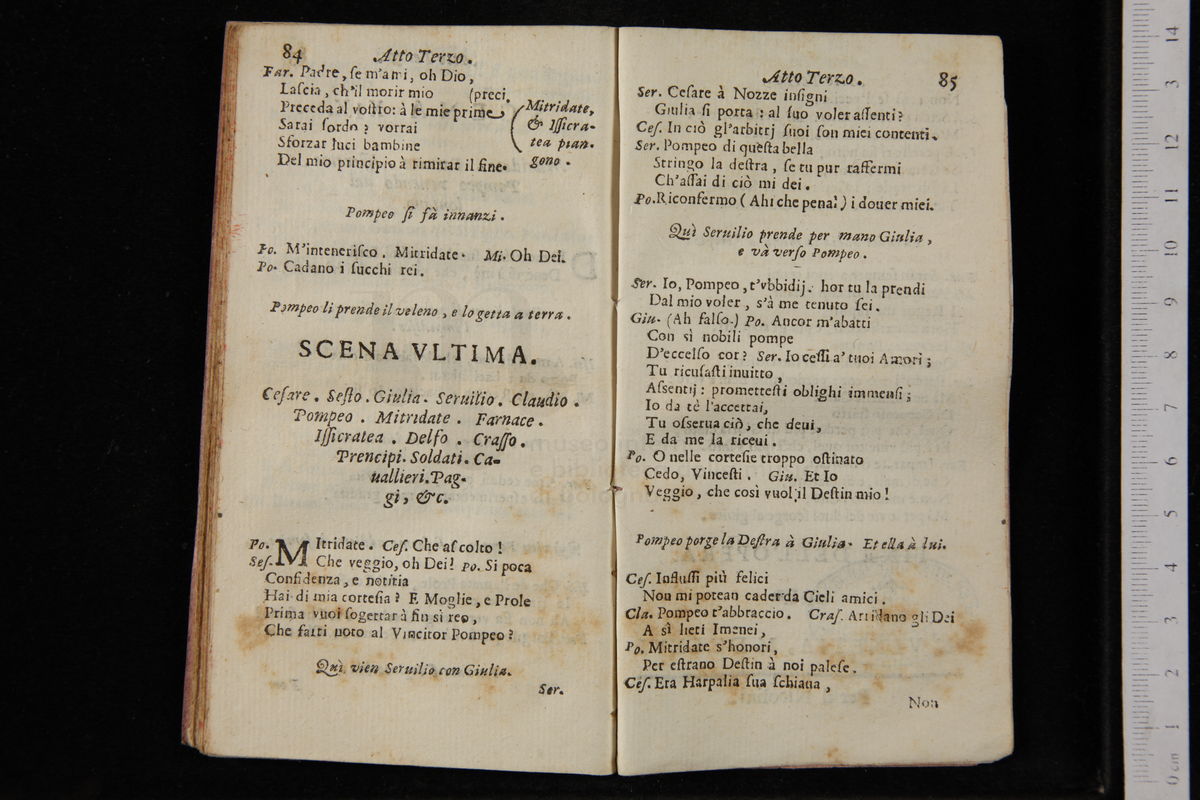 84
Atto Terzo.
Far. Padre, se m'ami, oh Dio,
Lascia, ch'il morir mio (preci,
Preceda al vostro: à le mie prime
Sarai sordo? vorrai
Sforzar luci bambine
Del mio principio à rimirar il fine.
Mitridate,
& Issicra-
tea pian-
gono.
Pompeo si fà innanzi.
Po. M'intenerisco. Mitridate. Mi. Oh Dei.
Po. Cadano i succhi rei.
Pompeo li prende il veleno, e lo getta a terra.
SCENA VLTIMA.
Cesare. Sesto. Giulia. Seruilio. Claudio.
Pompeo. Mitridate. Farnace.
Issicratea. Delfo. Crasso.
Prencipi. Soldati. Ca-
uallieri. Pag-
gi, &c.
Po. MItridate. Ces. Che ascolto!
Ses. Che veggio, oh Dei! Po. Si poca
Confidenza, e notitia
Hai di mia cortesia? E Moglie, e Prole
Prima vuoi sogettar à fin si reo,
Che farti noto al Vincitor Pompeo?
Quì vien Seruilio con Giulia.
Ser.
Atto Terzo.
85
Ser. Cesare à Nozze insigni
Giulia si porta: al suo voler assenti?
Ces. In ciò gl'arbitrj suoi son miei contenti.
Ser. Pompeo di questa bella
Stringo la destra, se tu pur raffermi
Ch'assai di ciò mi dei.
Po. Riconfermo (Ahi che pena!) i douer miei.
Quì Seruilio prende per mano Giulia,
e và verso Pompeo.
Ser. Io, Pompeo, t'vbbidij: hor tu la prendi
Dal mio voler, s'à me tenuto sei.
Giu. (Ah falso.) Po. Ancor m'abatti
Con sì nobili pompe
D'eccelso cor? Ser. Io cessi a' tuoi Amori;
Tu ricusasti inuitto,
Assentij: promettesti oblighi immensi;
Io da tè l'accettai,
Tu osserua ciò, che deui,
E da me la riceui.
Po. O nelle cortesie troppo ostinato
Cedo, Vincesti. Giu. Et Io
Veggio, che così vuol il Destin mio!
Pompeo porge la Destra à Giulia. Et ella à lui.
Ces. Influssi più felici
Non mi potean cader da Cieli amici.
Cla. Pompeo t'abbraccio. Cras. Arridano gli Dei
A sì lieti Imenei,
Po. Mitridate s'honori,
Per estrano Destin à noi palese.
Ces. Era Harpalia sua schiaua,
Non
14
13
12
11
10
9
8
7
6
5
4
3
2
1
0 cm